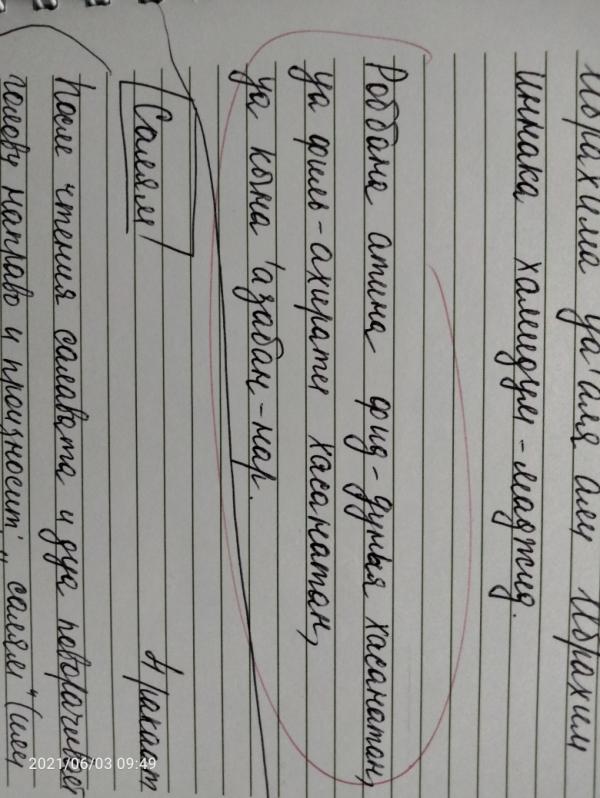 Ибрахима уа'аля али Ибрахим
Иннака хамидум-маджид.
Роббана атина фид-дунья хасанатан,
уа филь-ахирати хасанатан,
уа къна 'азабан-нар.
Салям
4 ракаат
После чтения салавата и дуа поворачивает
голову направо и произносит: "салям" (или
2021/06/03 09:49